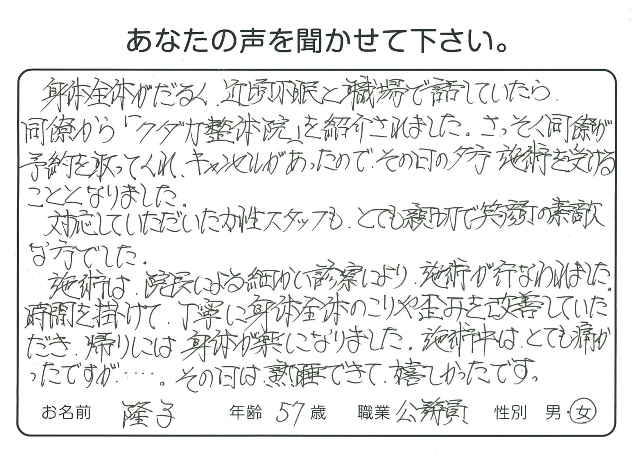 あなたの声を聞かせて下さい。
身体全体がだるく、近頃不眠と職場で話していたら、
同僚から「クダカ整体院」を紹介されました。さっそく同僚が
予約を取ってくれ、キャンセルがあったので、その日の夕方 施術を受ける
こととなりました。
対応していただいた女性スタッフも、とても親切で笑顔の素敵
な方でした。
施術は、院長による細かい診察により、施術が行なわれました。
時間を掛けて、丁寧に身体全体のこりや歪みを改善していた
だき、帰りには身体が楽になりました。施術中は、とても痛か
ったですが……。その日は熟睡できて、嬉しかったです。
お名前 隆子 年齢 57 歳 職業 公務員 性別 男・女